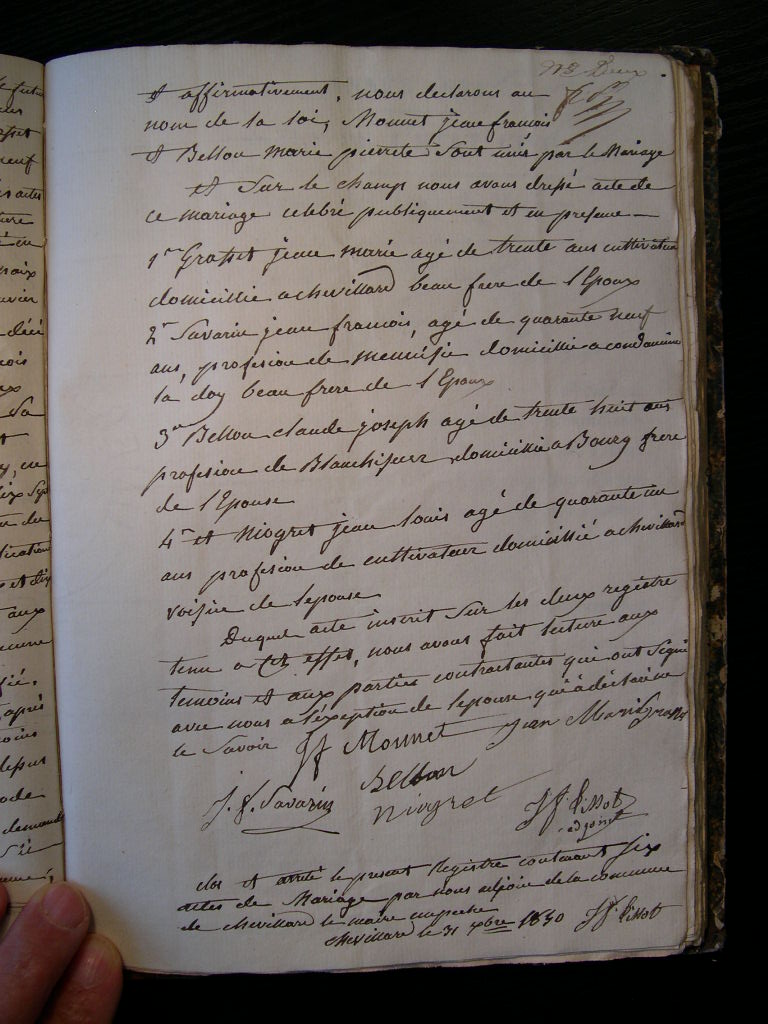 et affirmativement, nous declarons au
nom de la loi, Monnet jean francois
et Bellon marie pierrete sont unis par le Mariage
et Sur le champ nous avons dressé acte de
ce mariage celebré publiquement et en presence —
1er Grasset jean marie agé de trente ans cultivateur
domicillié a chevillard beau frere de l'Epoux
2e Savarin jean francois, agé de quarante neuf
ans, profesion de menuisie domicillié a condamine
la doy beau frere de l'Epoux
3e Bellon claude joseph agé de trente huit ans
profesion de Blanchiseur domicillié a Bourg frere
de l'Epouse
4e et Niogret jean louis agé de quarante un
ans profesion de cultivateur domicillié a chevillard
voisin de lepouse
Duquel acte inscrit Sur les deux registre
tenu a cet effet, nous avons fait lecture aux
temoins et aux parties contractantes qui ont Signé
avec nous a l'exeption de lepouse qui a déclaré ne
le Savoir Jf Monnet Jean Marie Grasset
J. f. Savarin Bellon
Niogret Jf Pissot
adjoint
clos et arrété le present Registre contenant Six
actes de Mariage par nous adjoin de la commune
de chevillard le maire empeche
chevillard le 31 xbre 1830 Jf Pissot